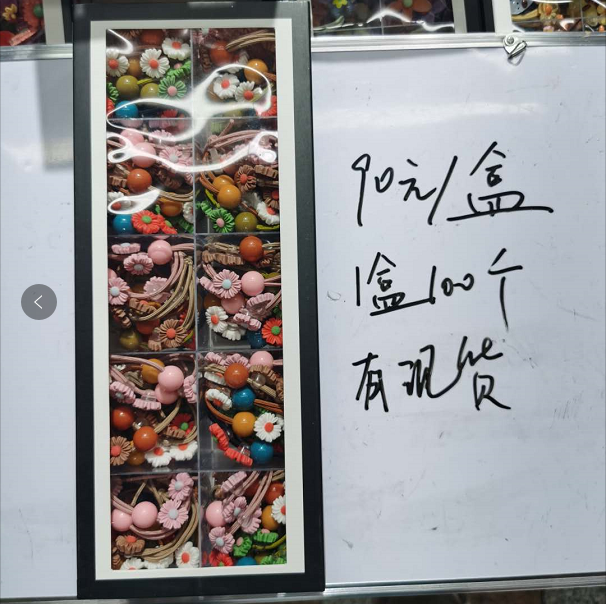 90元/盒
1盒100个
有现货